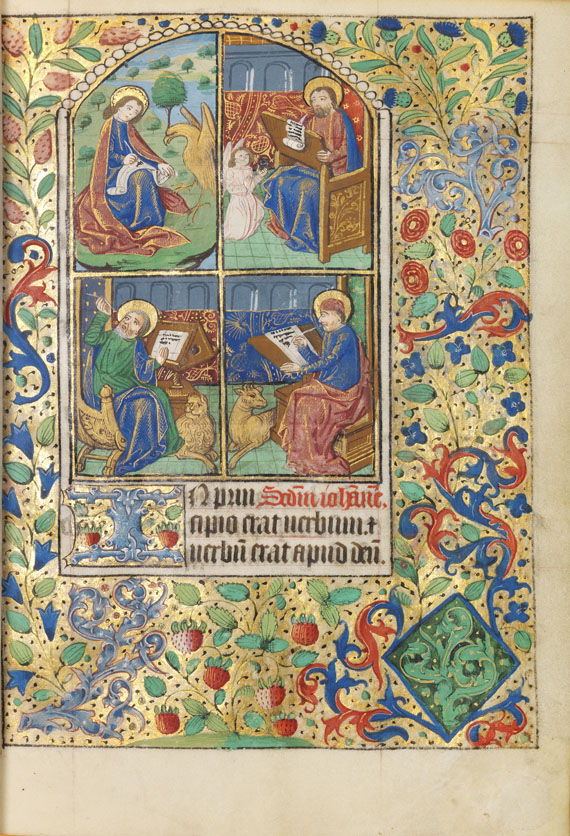 IN prin Sedm iohane.
cipio erat uerbum. &
uerbu erat apud deu.